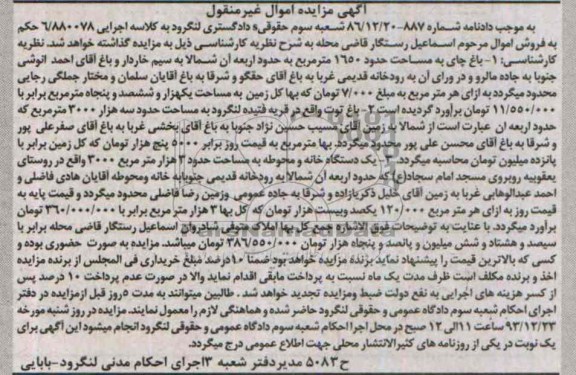 آگهی مزایده اموال غیرمنقول
به موجب دادنامه شماره ۸۸۷-۸۶/۱۲/۲۰ شعبه سوم حقوقی» دادگستری لنگرود به کلاسه اجرایی ۶/۸۸۰۰۷۸ حکم
به فروش اموال مرحوم اسماعیل رستگار قاضی محله به شرح نظریه کارشناسی ذیل به مزایده گذاشته خواهد شد. نظریه
کارشناسی: ۱- باغ چای به مساحت حدود ۱۶۵۰ مترمربع به حدود اربعه آن شمالا به سیم خاردار و باغ آقای احمد انوشی
جنوبا به جاده مالرو و در ورای آن به رودخانه قدیمی غربا به باغ آقای حقگو و شرقا به باغ آقایان سلمان و مختار جملگی رجایی
محدود میگردد به ازای هر متر مربع به مبلغ ۷/۰۰۰ تومان که بها کل زمین به مساحت یکهزار و ششصد و پنجاه مترمربع برابر با
۱۱/۵۵۰/۰۰۰ تومان برآورد گردیده است ۲- باغ توت واقع در قریه فتیده لنگرود به مساحت حدود سه هزار ۳۰۰۰ مترمربع که
حدود اربعه ان عبارت است از شمالا به زمین آقای مسیب حسین نژاد جنوبا به باغ آقای بخشی غربا به باغ آقای صفرعلی پور
و شرقا به باغ آقای محسن علی پور محدود میگردد. بها مترمربع به قیمت روز برابر ۵۰۰۰ پنج هزار تومان که کل زمین برابر با
پانزده میلیون تومان محاسبه میگردد ۳- یک دستگاه خانه و محوطه به مساحت حدود ۳ هزار متر مربع ۳۰۰۰ واقع در روستای
یعقوبیه روبروی مسجد امام سجاد(ع) که حدود اربعه آن شمالا به رودخانه قدیمی جنوبا به خانه ومحوطه آقایان هادی فاضلی و
احمد عبدالوهابی غربا به زمین آقای خلیل ذکریازاده و شرقا به جاده عمومی وزمین رضا فاضلی محدود میگردد و قیمت پایه به
قیمت روز به ازای هر متر مربع ۱۲۰/۰۰۰ یکصد وبیست هزار تومان که کل بها ۳ هزار متر مربع برابر با ۳۶۰/۰۰۰/۰۰۰ تومان
برآورد میگردد. با عنایت به توضیحات فوق الاشاره جمع کل بها املاک فوق شادروان اسماعیل رستگار قاضی محله برابر با
سیصد و هشتاد و شش میلیون و پانصد و پنجاه هزار تومان ۳۸۶/۵۵۰/۰۰۰ تومان میباشد. مزایده به صورت حضوری بوده و
کسی که بالاترین قیمت را پیشنهاد نماید برنده مزایده خواهد بود ضمنا ۱۰درصد مبلغ خریداری فی المجلس از برنده مزایده
اخذ و برنده مکلف است ظرف مدت یک ماه نسبت به پرداخت مابقی اقدام نماید والا در صورت عدم پرداخت ۱۰ درصد پس
از کسر هزینه های اجرایی به نفع دولت ضبط ومزایده تجدید خواهد شد . طالبین میتوانند به مدت ۵روز قبل ازمزایده در دفتر
اجرای احکام شعبه سوم دادگاه عمومی و حقوقی لنگرود حاضر شده و هماهنگی لازم را معمول نمایند. مزایده در روز شنبه مورخه
۹۳/۱۲/۲۳ ساعت ۱۱الی ۱۲ صبح در محل اجرا احکام شعبه سوم دادگاه عمومی و حقوقی لنگرود انجام میشود این آگهی برای
یک نوبت در یکی از روزنامه های کثیرالانتشار محلی جهت اطلاع عمومی درج میگردد.
ح۵۰۸۳ مدیردفتر شعبه ۳اجرای احکام مدنی لنگرود-بابایی